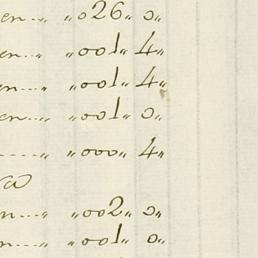 en.. „026„ 0„
en... „001„ 4„
en... „001„ 4„
en... „001„ 0„
---- „000„ 4„
n...„ „002„ 0„
n...„ „001 0„